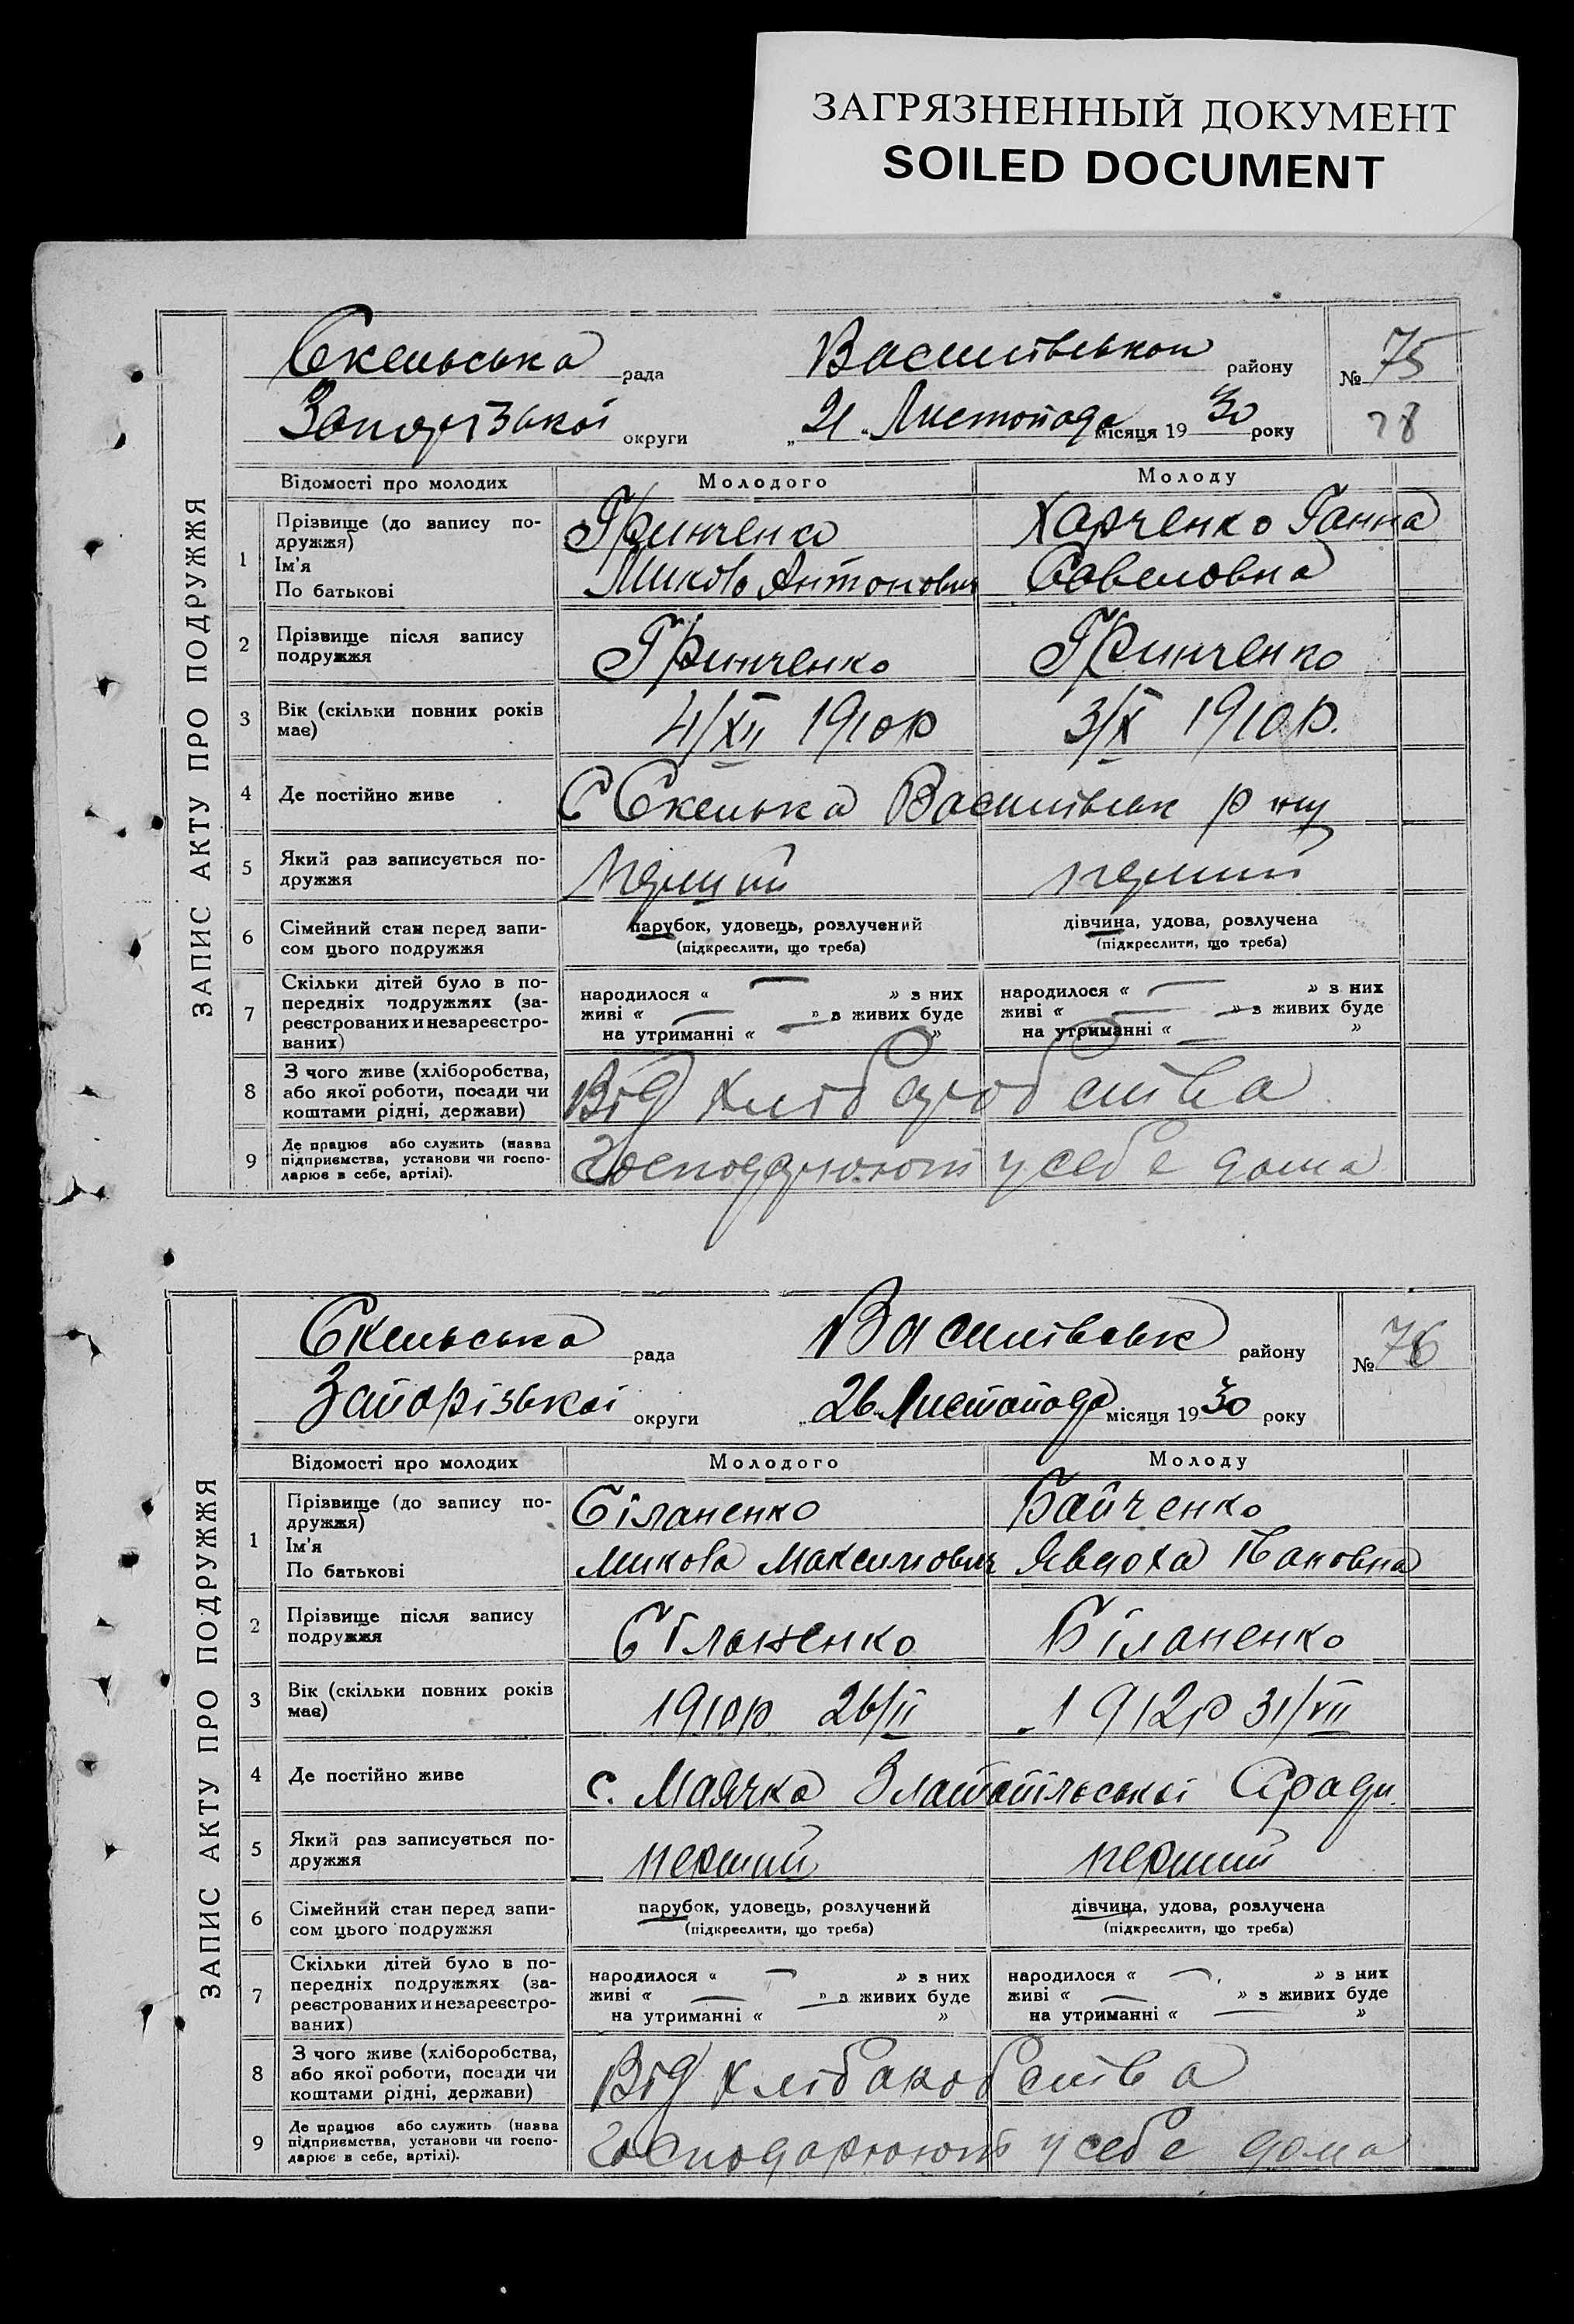 ЗАГРЯЗНЕННЫЙ ДОКУМЕНТ
SOILED DOCUMENT
ЗАПИС АКТУ ПРО ПОДРУЖЖЯ
Скельська рада Василівської району № 75
Запорізької округи „21„ Листопада місяця 19 30 року 28
Відомості про молодих Молодого Молоду
1 Прізвище (до запису подружжя) Гринченко Харченко Ганна
Ім'я
По батькові Микола Антонович Савеловна
2 Прізвище після запису подружжя Гринченко Гринченко
3 Вік (скільки повних років має) 4/XII 1910р 3/X 1910р.
4 Де постійно живе С Скелька Василівськ р ну
5 Який раз записується подружжя перший перший
6 Сімейний стан перед записом цього подружжя парубок, удовець, розлучений дівчина, удова, розлучена
(підкреслити, що треба) (підкреслити, що треба)
7 Скільки дітей було в попередніх подружжях (зареєстрованих и незареєстрованих)
народилося « — » з них народилося « — » з них
живі « — » з живих буде живі « — » з живих буде
на утриманні « — » на утриманні « — »
8 З чого живе (хліборобства, або якої роботи, посади чи коштами рідні, держави) Від хліборобства
9 Де працює або служить (назва підприємства, установи чи господарює в себе, артілі). Господарюют у себе дома
ЗАПИС АКТУ ПРО ПОДРУЖЖЯ
Скельська рада Василівськ району № 76
Запорізької округи „26„ Листопада місяця 19 30 року
Відомості про молодих Молодого Молоду
1 Прізвище (до запису подружжя) Біланенко Байченко
Ім'я
По батькові Микола Максимович Явдоха Івановна
2 Прізвище після запису подружжя Біланенко Біланенко
3 Вік (скільки повних років має) 1910р 26/II 1912р 31/VII
4 Де постійно живе с. Маячка Златопільської С ради
5 Який раз записується подружжя перший перший
6 Сімейний стан перед записом цього подружжя парубок, удовець, розлучений дівчина, удова, розлучена
(підкреслити, що треба) (підкреслити, що треба)
7 Скільки дітей було в попередніх подружжях (зареєстрованих и незареєстрованих)
народилося « — » з них народилося « — » з них
живі « — » з живих буде живі « — » з живих буде
на утриманні « » на утриманні « — »
8 З чого живе (хліборобства, або якої роботи, посади чи коштами рідні, держави) Від хлібаробства
9 Де працює або служить (назва підприємства, установи чи господарює в себе, артілі). Господарюют у себе дома